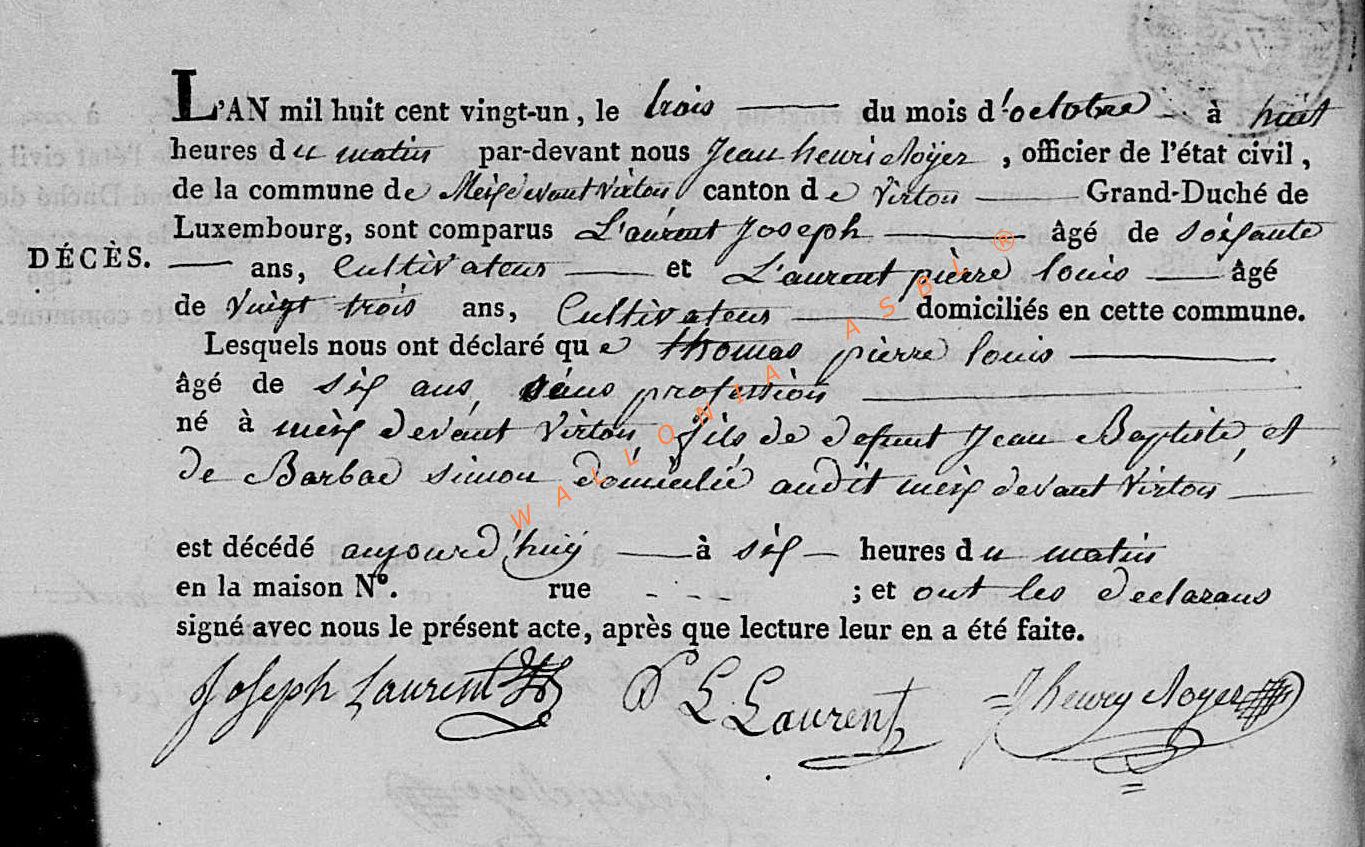 L'AN mil huit cent vingt-un, le trois du mois d'octobre à huit
heures du matin par-devant nous Jean henri Noÿer, officier de l'état civil,
de la commune de Meixdevant Virton canton de Virton Grand-Duché de
Luxembourg, sont comparus L'aurent Joseph âgé de soixante
DÉCÈS.
ans, Cultivateur et L'aurent pierre louis âgé
de Vingt trois ans, Cultivateur domiciliés en cette commune.
Lesquels nous ont déclaré que thomas pierre louis
âgé de six ans, sans profession
né à meix devant Virton fils de defunt Jean Baptiste, et
de Barbae simon domicilié audit meix devant Virton
est décédé aujourd'huÿ à six heures du matin
en la maison N°. rue - - - ; et ont les declarans
signé avec nous le présent acte, après que lecture leur en a été faite.
Joseph Laurent P L Laurent J henry Noyer
WALLONIA ASBL ®